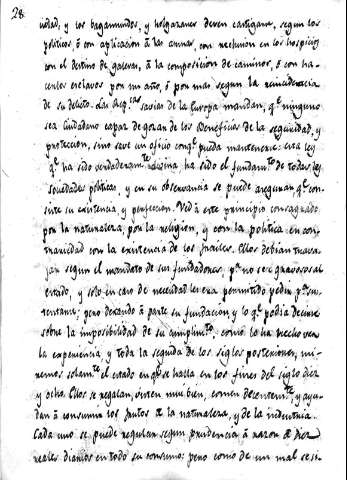 28
cidad, y los bagamundos, y holgazanes deven castigarse, segun los
politicos, ó con aplicacion á las armas, con reclusion en los hospicios
con el destino de galeras, á la composicion de caminos, ó con ha-
cerles esclavos por un año, ó por mas segun la reincidencia
de su delito. Las Leg.s sabias de la Europa mandan, q.e ninguno
sea Ciudadano capaz de gozar de los Beneficios de la seguridad, y
proteccion, sino tiene un oficio con q.e pueda mantenerse: esta ley
q.e ha sido verdaderam.te divina ha sido el fundam.to de todas las
sociedades politicas, y en su observancia se puede asegurar q.e con-
siste su existencia, y perfeccion. Ved á este principio consagrado
por la naturaleza, por la religion, y con la politica en con-
trariedad con la existencia de los frailes. Ellos debian trava-
jar segun el mandato de sus fundadores, p.a no ser gravosos al
estado, y solo en caso de necesidad les era permitido pedir p.a su-
stentarse; pero dexando á parte su fundacion y lo q.e podia decirse
sobre la imposibilidad de su cumplim.to, como lo ha hecho ver
la experiencia, y toda la seguida de los siglos posteriores, mi-
remos solam.te el estado en q.e se halla en los fines del siglo diez
y ocho. Ellos se regalan, viven mui bien, comen decentem.te, y ayu-
dan á consumir los frutos de la naturaleza, y de la industria.
Cada uno se puede regular segun prudencia á razon de diez
reales diarios en todo su consumo: pero como de un mal se si-